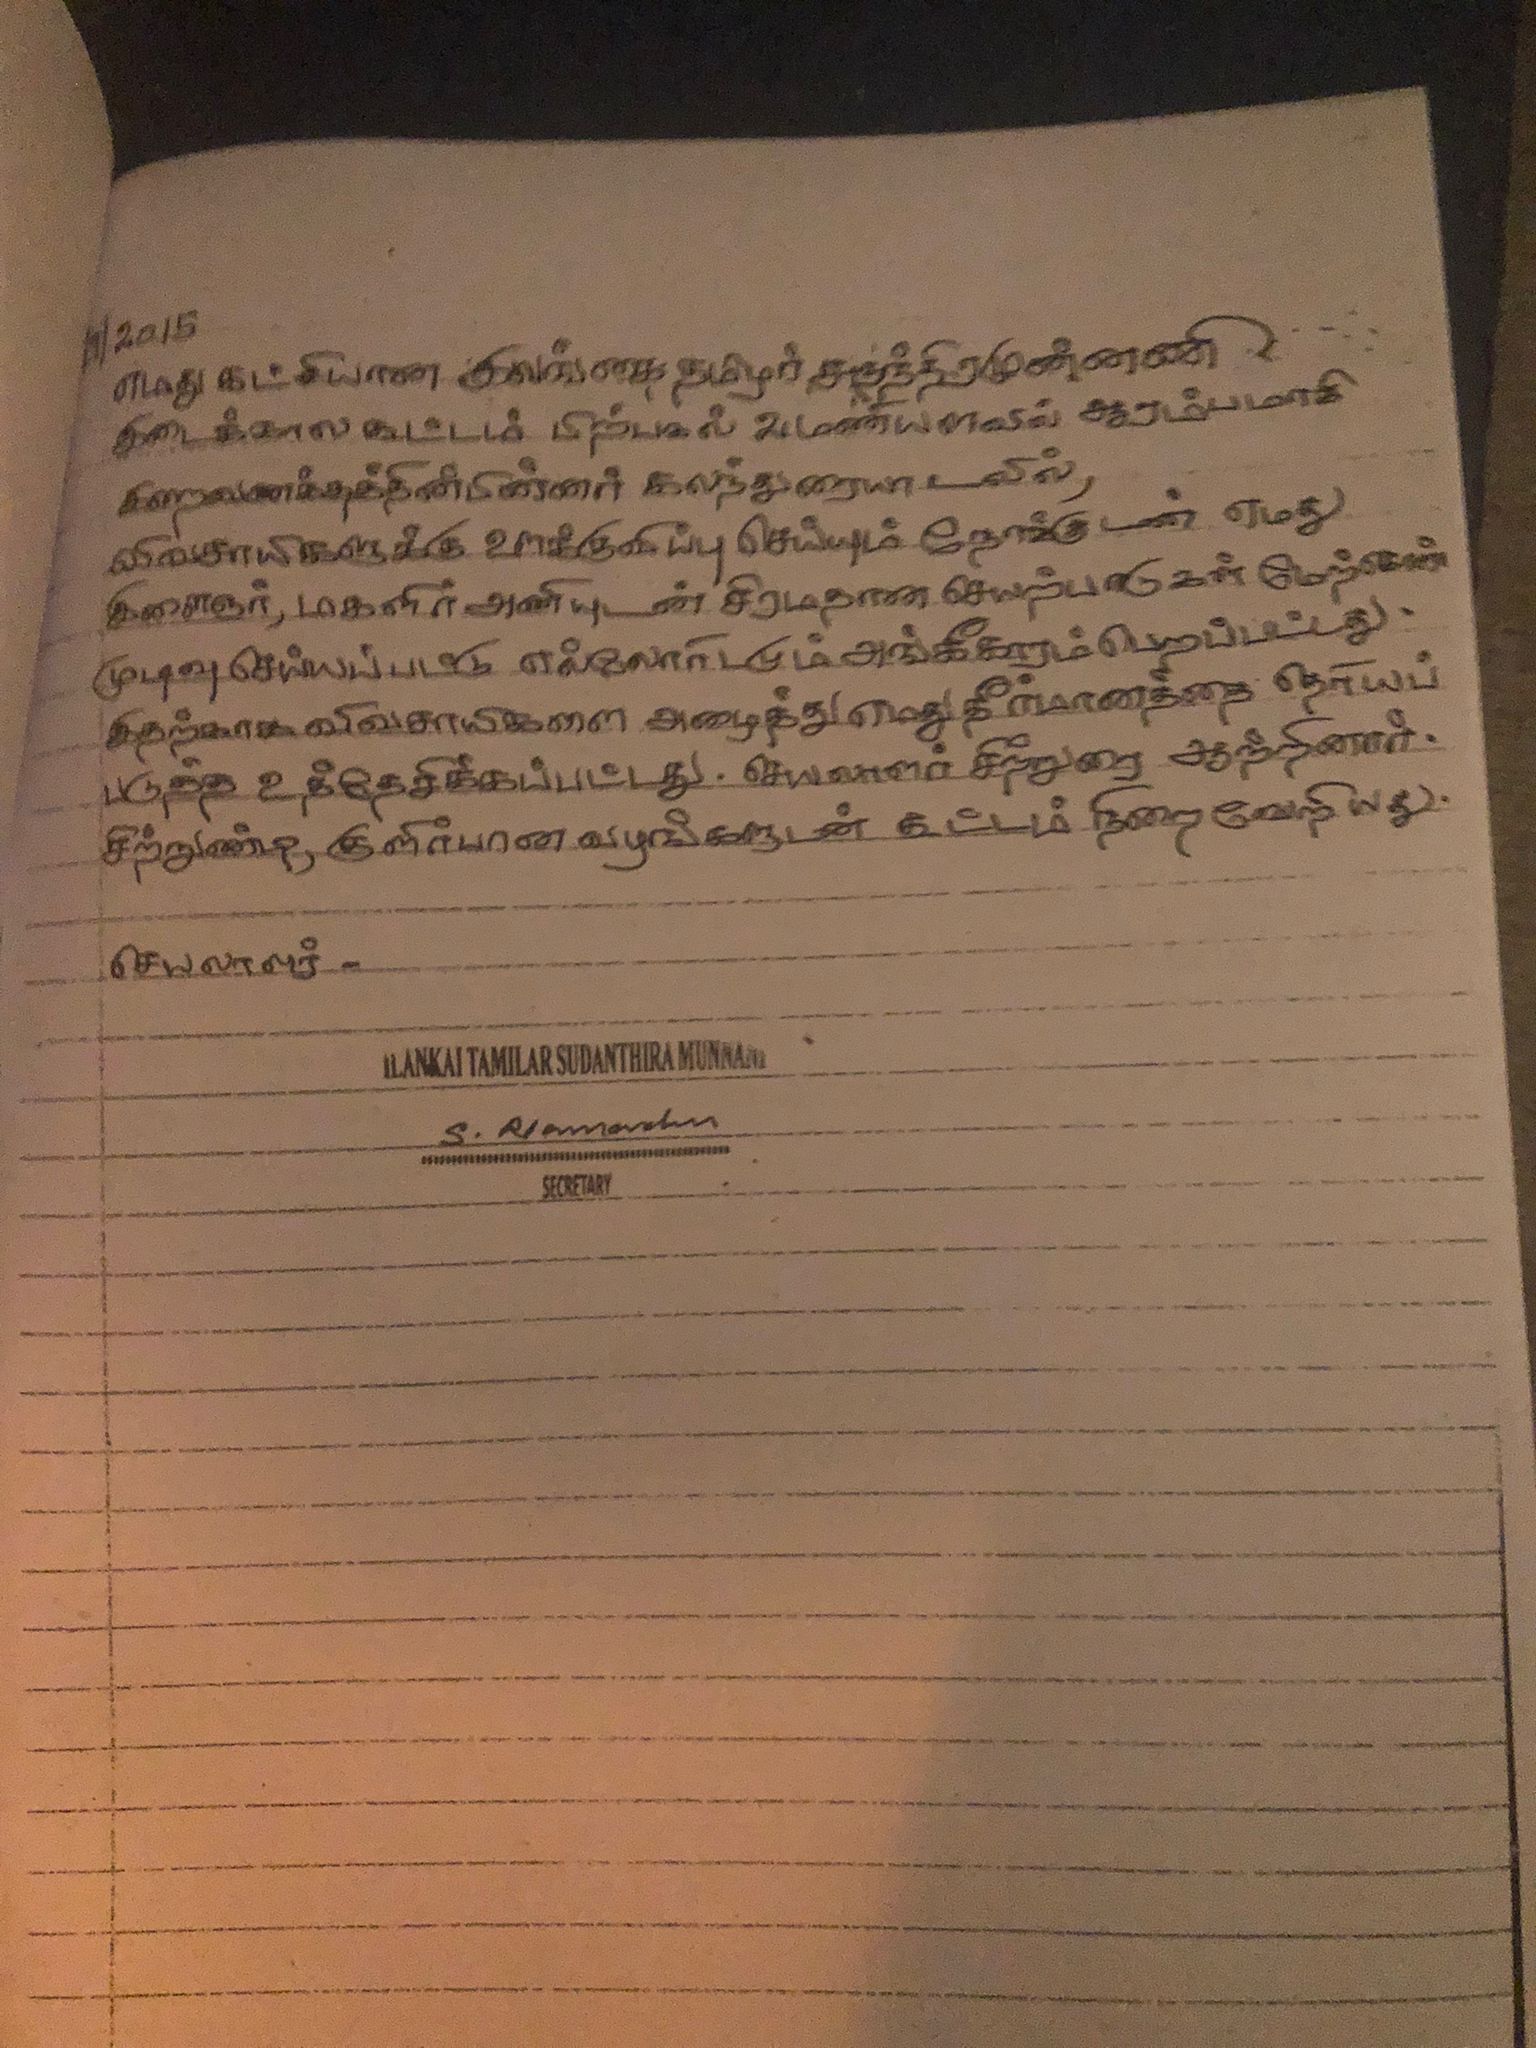 2015
எமது கட்சியான இலங்கை தமிழர் சுதந்திரமுன்னணி
இடைக்கால கூட்டம் பிற்பகல் 2மணியளவில் ஆரம்பமாகி
இறைவணக்கத்தின்பின்னர் கலந்துரையாடலில்,
விவசாயிகளுக்கு ஊக்குவிப்பு செய்யும் நோக்குடன் எமது
இளைஞர், மகளிர் அணியுடன் சிரமதான செயற்பாடுகள் மேற்கொள்
முடிவு செய்யப்பட்டு எல்லோரிடமும் அங்கீகாரம் பெறப்பட்டது.
இதற்காக விவசாயிகளை அழைத்து எமது தீர்மானத்தை தெரியப்
படுத்த உத்தேசிக்கப்பட்டது. செயலாளர் சிற்றுரை ஆற்றினார்.
சிற்றுண்டி, குளிர்பான வழங்களுடன் கூட்டம் நிறைவேறியது.
செயலாளர் -
ILANKAI TAMILAR SUDANTHIRA MUNNANI
SECRETARY